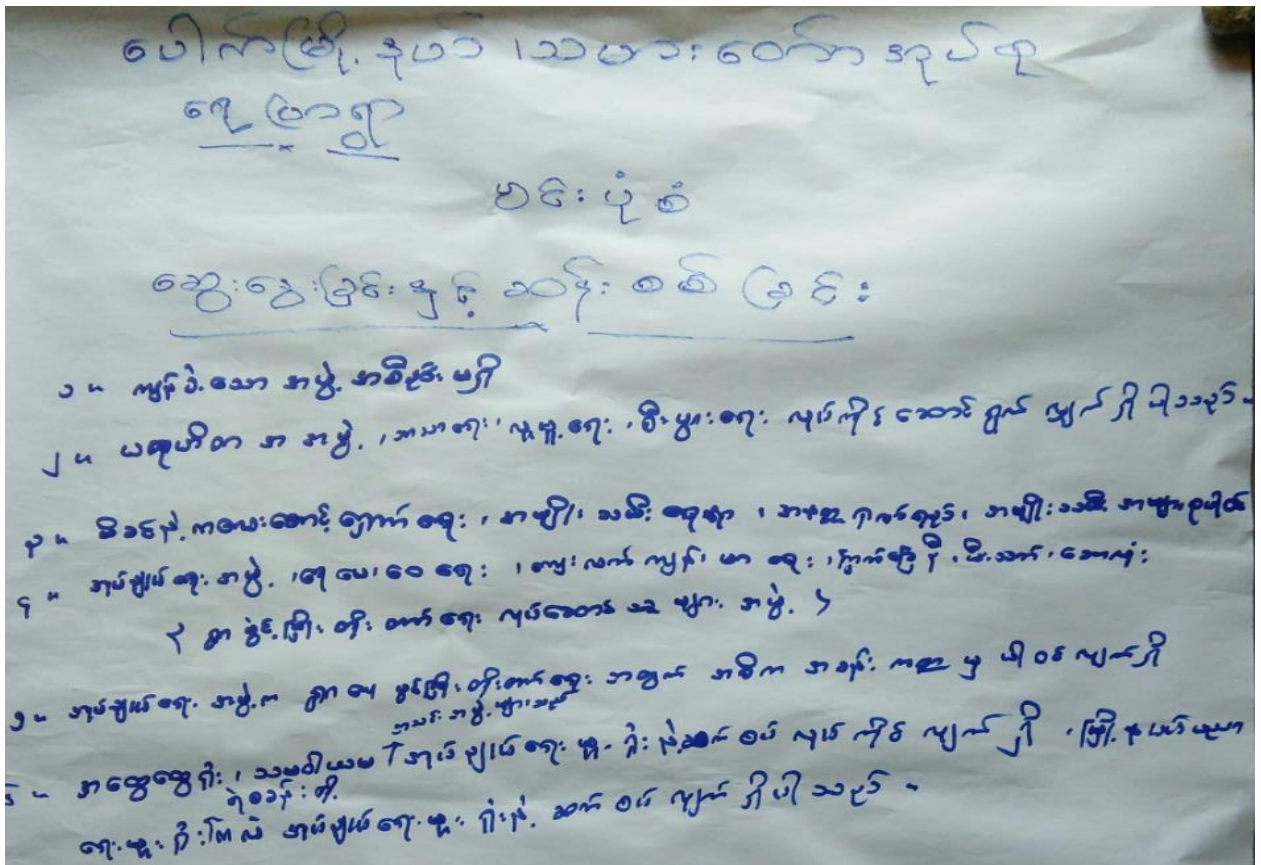 ပေါက်မြို့နယ်၊ သမားတော်အုပ်စု
ရွာ
ဗင်းပုံစံ
ဆွေးနွေးခြင်းနှင့် ဆန်းစစ်ခြင်း
၁။ ကျန်ခဲ့သော အဖွဲ့အစည်း မရှိ
၂။ ပရဟိတ အဖွဲ့၊ သာရေး၊ လူမှုရေး၊ စီးပွားရေး လုပ်ကိုင်ဆောင်ရွက်လျှက်ရှိပါသည်။
၃။ မိခင်နှင့် ကလေးစောင့်ရှောက်ရေး၊ အမျိုးသမီးရေးရာ၊
၄။ အုပ်ချုပ်ရေးအဖွဲ့၊ ရေပေးဝေရေး၊ ကျေးလက်ကျန်းမာရေး၊ ကြက်ခြေနီ၊ မီးသတ်၊
( ရွာဖွံ့ဖြိုးတိုးတက်ရေး လုပ်ဆောင်သူများအဖွဲ့ )
၅။ အုပ်ချုပ်ရေးအဖွဲ့က ရွာဖွံ့ဖြိုးတိုးတက်ရေးအတွက် အဓိကအခန်းကဏ္ဍမှ ပါဝင်လျှက်ရှိ
အသင်းအဖွဲ့များသည်
၆။ အထွေထွေရုံး၊ သမဝါယမ အုပ်ချုပ်ရေးမှူးရုံးနှင့် ဆက်စပ်လုပ်ကိုင်လျှက်ရှိ၊ မြို့နယ်ပညာ
ရဲစခန်းတို့
ရေးမှူးရုံး အုပ်ချုပ်ရေးမှူးရုံးနှင့် ဆက်စပ်လျှက်ရှိပါသည်။